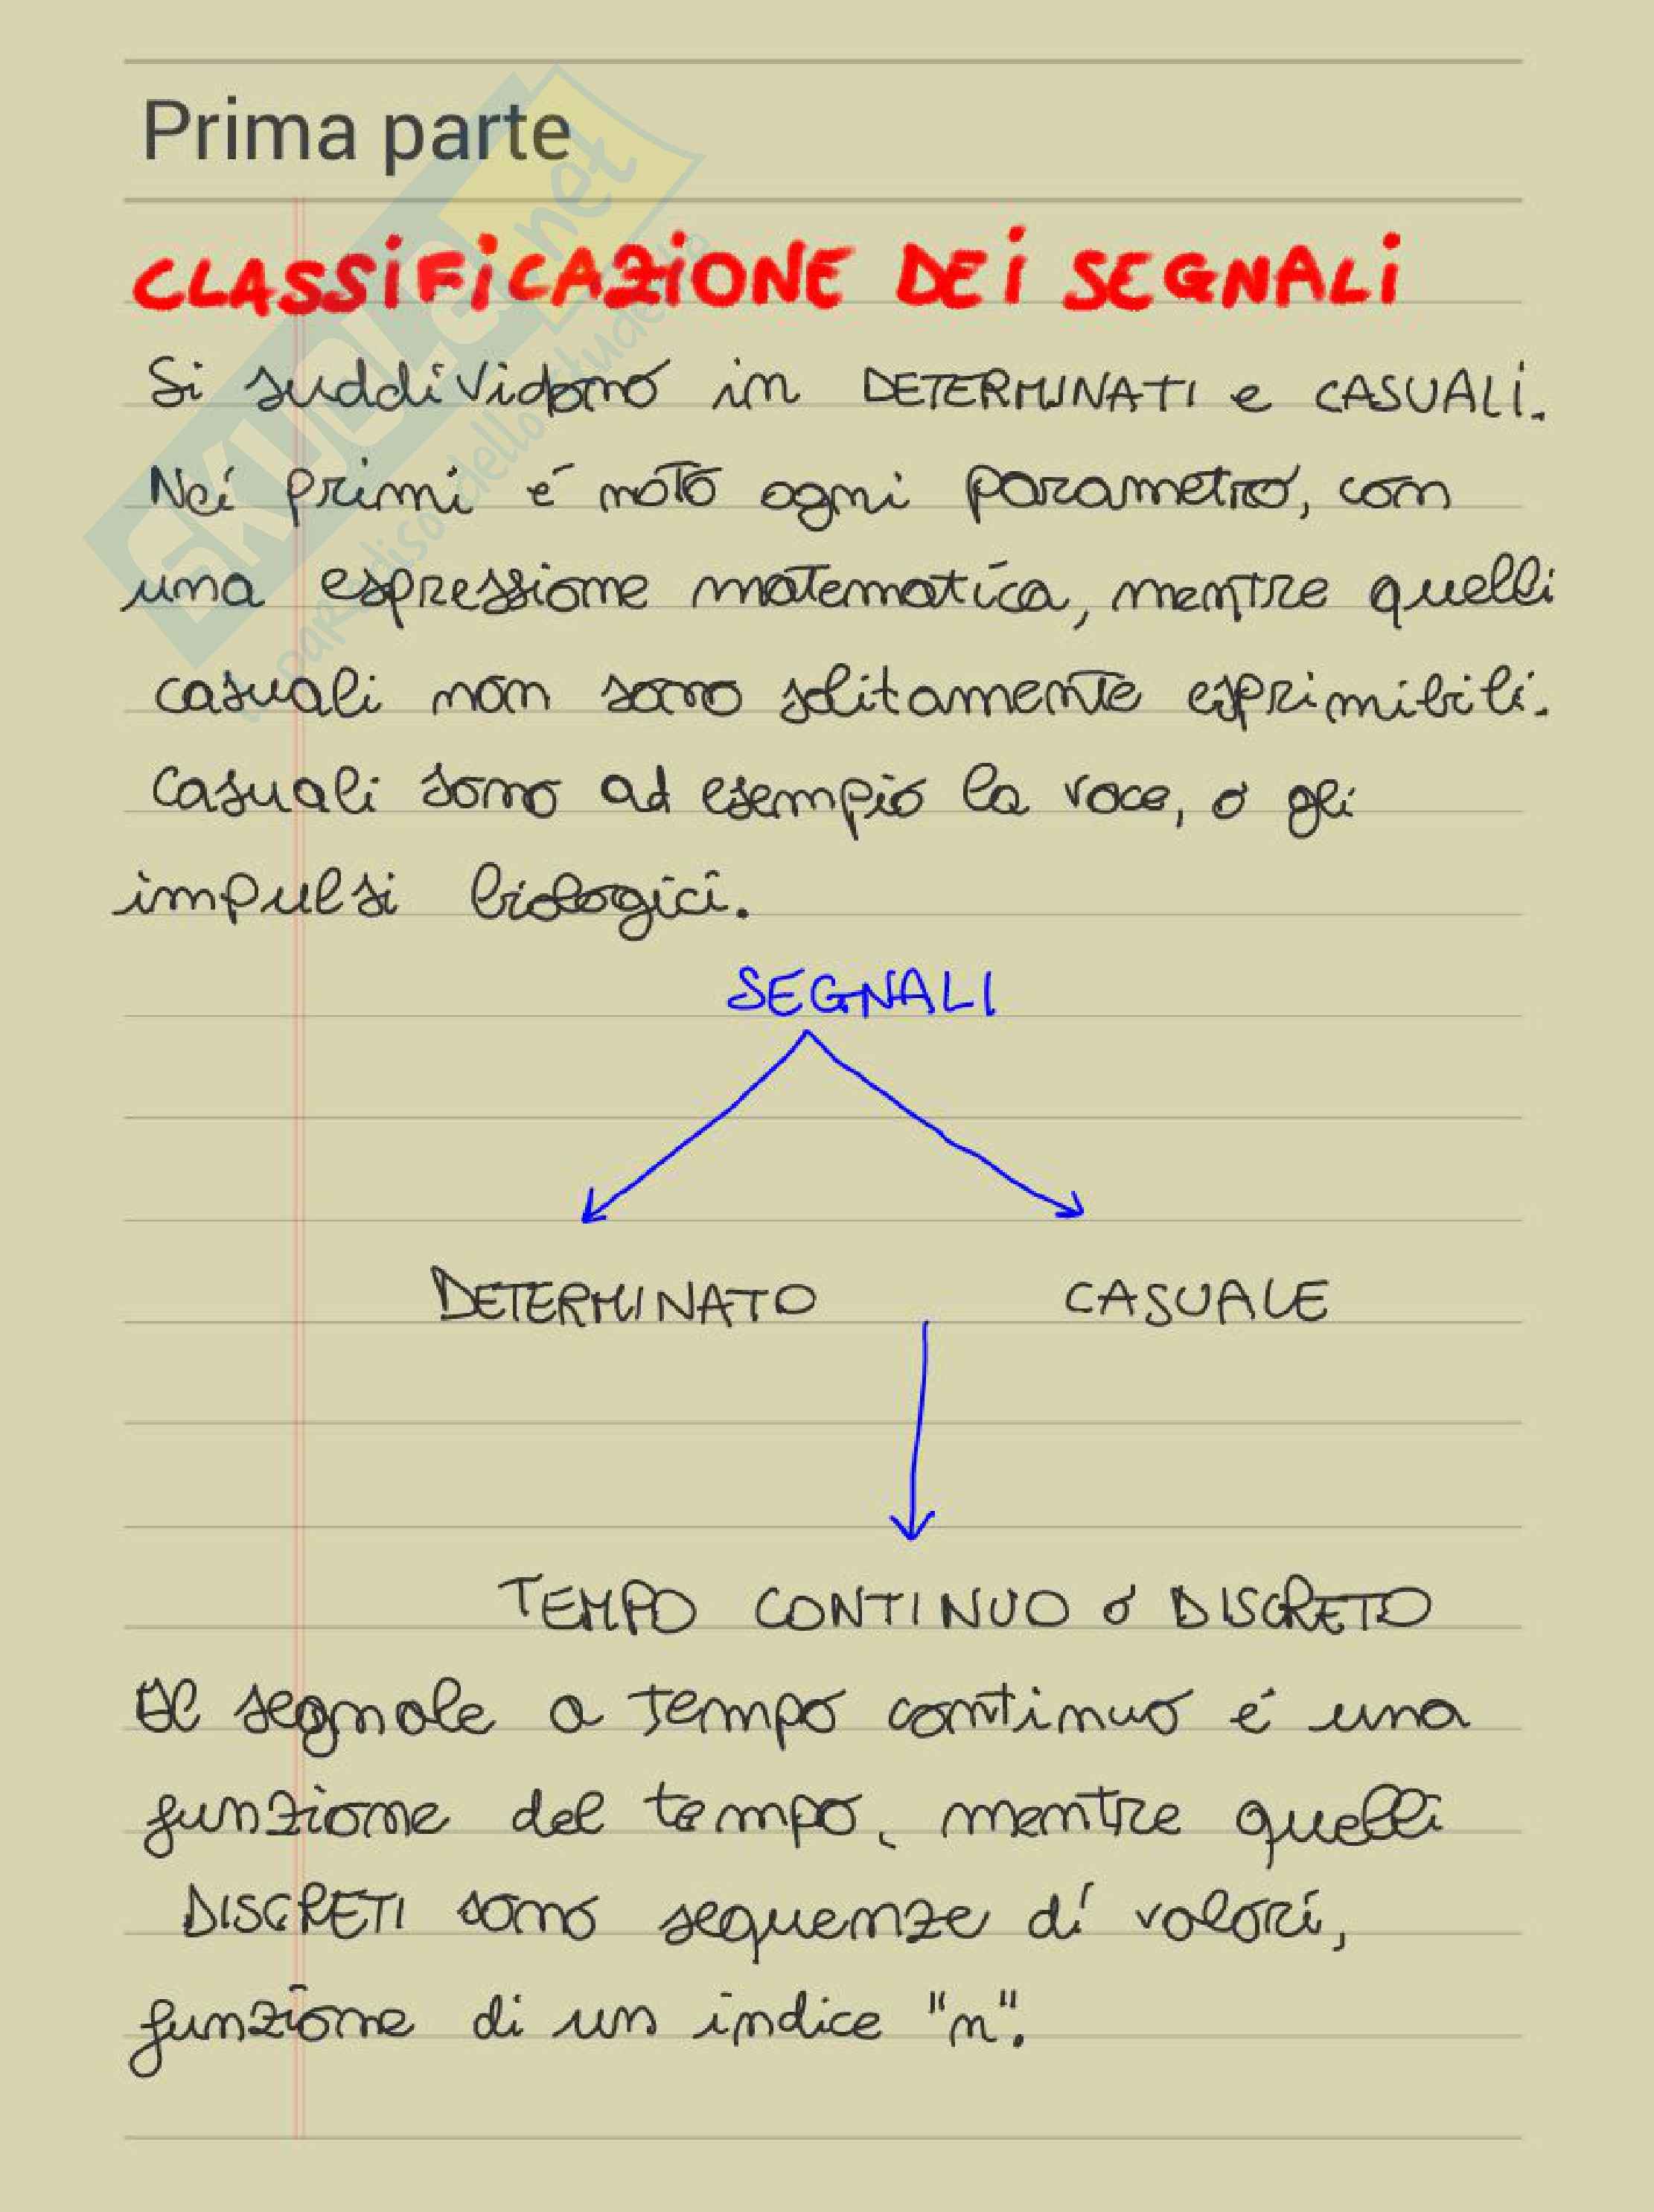 Prima parte
CLASSIFICAZIONE DEI SEGNALI
Si suddividono in DETERMINATI e CASUALI.
Nei primi é noto ogni parametro, con
una espressione matematica, mentre quelli
casuali non sono solitamente esprimibili.
Casuali sono ad esempio la voce, o gli
impulsi biologici.
SEGNALI
DETERMINATO CASUALE
TEMPO CONTINUO o DISCRETO
Il segnale a tempo continuo é una
funzione del tempo, mentre quelli
DISCRETI sono sequenze di valori,
funzione di un indice "n".
SKUOLA.net
il paradiso dello studente